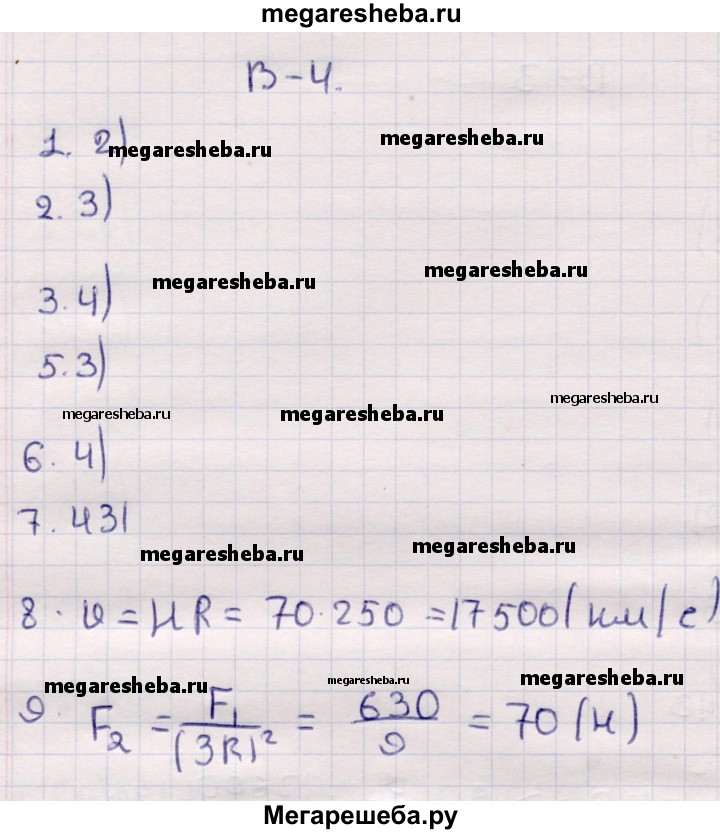 megaresheba.ru
В-4.
1. 2) megaresheba.ru megaresheba.ru
2. 3)
3. 4) megaresheba.ru megaresheba.ru
5. 3)
megaresheba.ru megaresheba.ru megaresheba.ru
6. 4)
7. 431
megaresheba.ru megaresheba.ru
8. υ = HR = 70·250 = 17500 (км/с)
megaresheba.ru megaresheba.ru megaresheba.ru
9. F₂ = F₁/(3R)² = 630/9 = 70 (Н)
Мегарешеба.ру